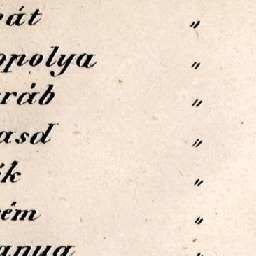 pát „
opolya „
ráb „
asd „
k „
ém „
anya „